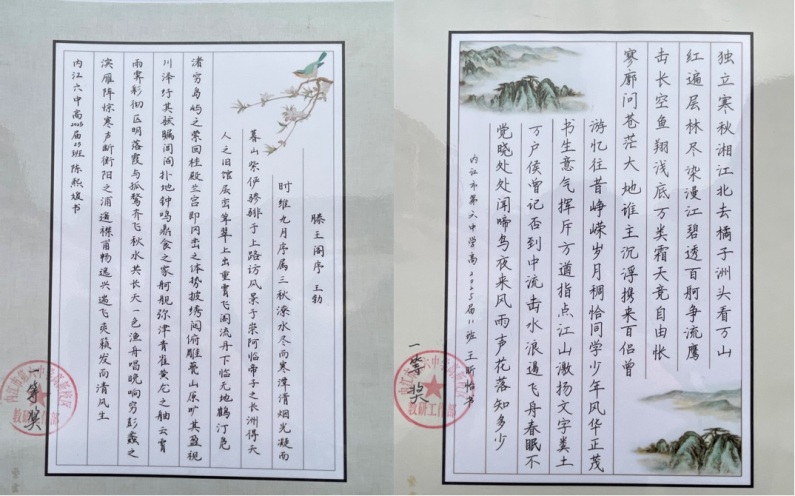 滕王阁序 王勃
时维九月序属三秋潦水尽而寒潭清烟光凝而
暮山紫俨骖騑于上路访风景于崇阿临帝子之长洲得天
人之旧馆层峦耸翠上出重霄飞阁流丹下临无地鹤汀凫
渚穷岛屿之萦回桂殿兰宫即冈峦之体势披绣闼俯雕甍山原旷其盈视
川泽纡其骇瞩闾阎扑地钟鸣鼎食之家舸舰弥津青雀黄龙之舳云霄
雨霁彩彻区明落霞与孤鹜齐飞秋水共长天一色渔舟唱晚响穷彭蠡之
滨雁阵惊寒声断衡阳之浦遥襟甫畅逸兴遄飞爽籁发而清风生
内江六中高届25班陈书
一等奖
教研工作部
独立寒秋湘江北去橘子洲头看万山
红遍层林尽染漫江碧透百舸争流鹰
击长空鱼翔浅底万类霜天竞自由怅
寥廓问苍茫大地谁主沉浮携来百侣曾
游忆往昔峥嵘岁月稠恰同学少年风华正茂
书生意气挥斥方遒指点江山激扬文字粪土
万户侯曾记否到中流击水浪遏飞舟春眠不
觉晓处处闻啼鸟夜来风雨声花落知多少
内江市第六中学高2025届11班王昕怡书
一等奖
教研工作部